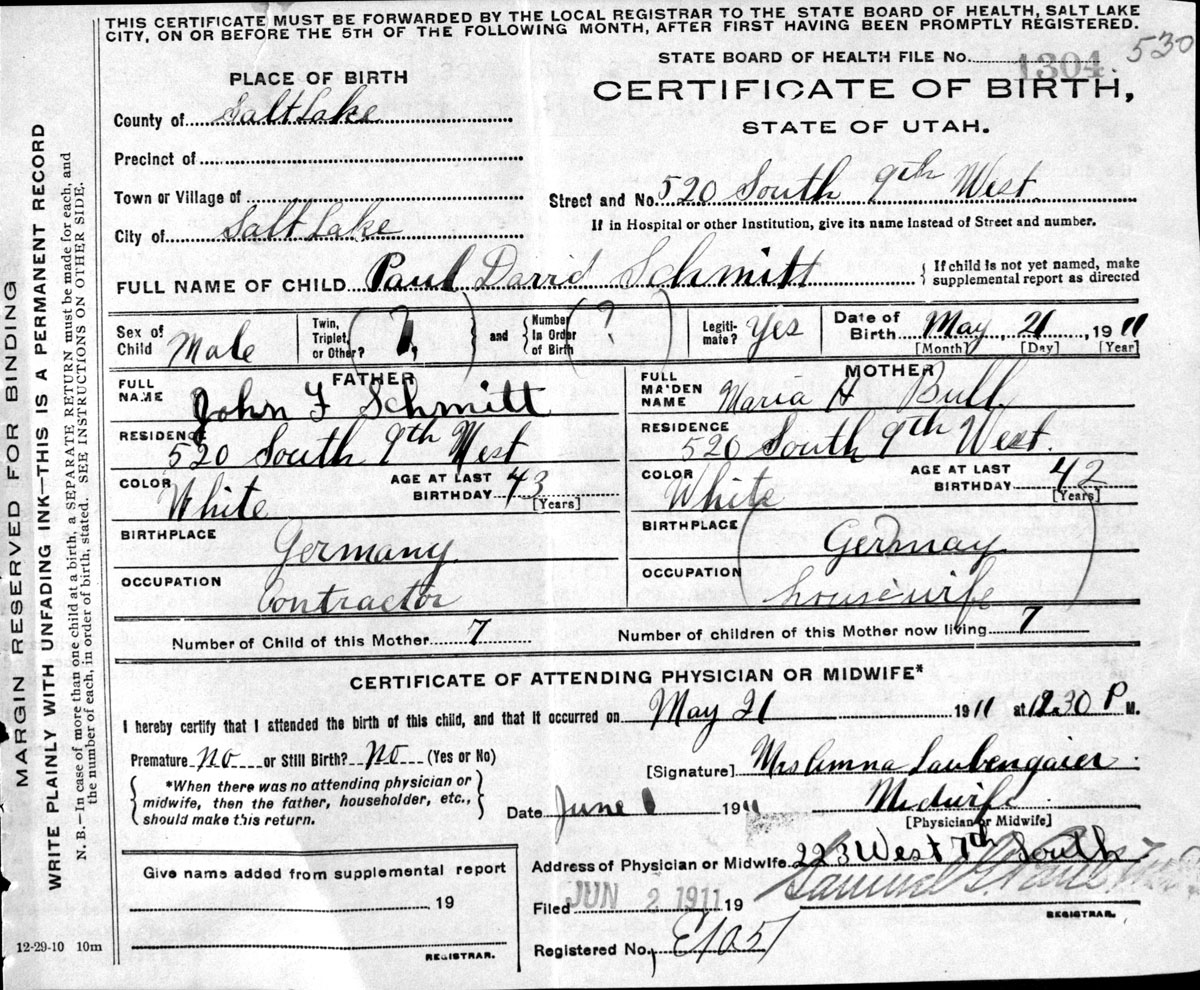 THIS CERTIFICATE MUST BE FORWARDED BY THE LOCAL REGISTRAR TO THE STATE BOARD OF HEALTH, SALT LAKE
CITY, ON OR BEFORE THE 5TH OF THE FOLLOWING MONTH, AFTER FIRST HAVING BEEN PROMPTLY REGISTERED.
530
STATE BOARD OF HEALTH FILE No. 1304
PLACE OF BIRTH
CERTIFICATE OF BIRTH,
STATE OF UTAH.
County of Salt Lake
Precinct of
Town or Village of
Street and No. 520 South 9th West
City of Salt Lake
If in Hospital or other Institution, give its name instead of Street and number.
FULL NAME OF CHILD Paul David Schmitt
If child is not yet named, make
supplemental report as directed
Sex of Child Male
Twin, Triplet, or Other? 1,
and
Number in Order of Birth ?
Legitimate? Yes
Date of Birth May 21, 1911
[Month] [Day] [Year]
FATHER
MOTHER
FULL NAME John F Schmitt
FULL MAIDEN NAME Maria H Bull
RESIDENCE 520 South 9th West
RESIDENCE 520 South 9th West.
COLOR White
AGE AT LAST BIRTHDAY 43
[Years]
COLOR White
AGE AT LAST BIRTHDAY 42
[Years]
BIRTHPLACE Germany
BIRTHPLACE Germay
OCCUPATION Contractor
OCCUPATION housewife
Number of Child of this Mother 7
Number of children of this Mother now living 7
CERTIFICATE OF ATTENDING PHYSICIAN OR MIDWIFE*
I hereby certify that I attended the birth of this child, and that it occurred on May 21 1911 at 12.30 P M.
Premature no or Still Birth? no (Yes or No)
[Signature] Mrs Anna Laubengaier
*When there was no attending physician or
midwife, then the father, householder, etc.,
should make this return.
Date June 1911
Midwife
[Physician or Midwife]
Address of Physician or Midwife 223 West 7th South
Give name added from supplemental report
19
Filed JUN 2 1911 19
Samuel G. Paul
REGISTRAR.
Registered No. E1057
REGISTRAR.
12-29-10 10m
MARGIN RESERVED FOR BINDING
WRITE PLAINLY WITH UNFADING INK—THIS IS A PERMANENT RECORD
N. B.—In case of more than one child at a birth, a SEPARATE RETURN must be made for each, and
the number of each, in order of birth, stated. SEE INSTRUCTIONS ON OTHER SIDE.